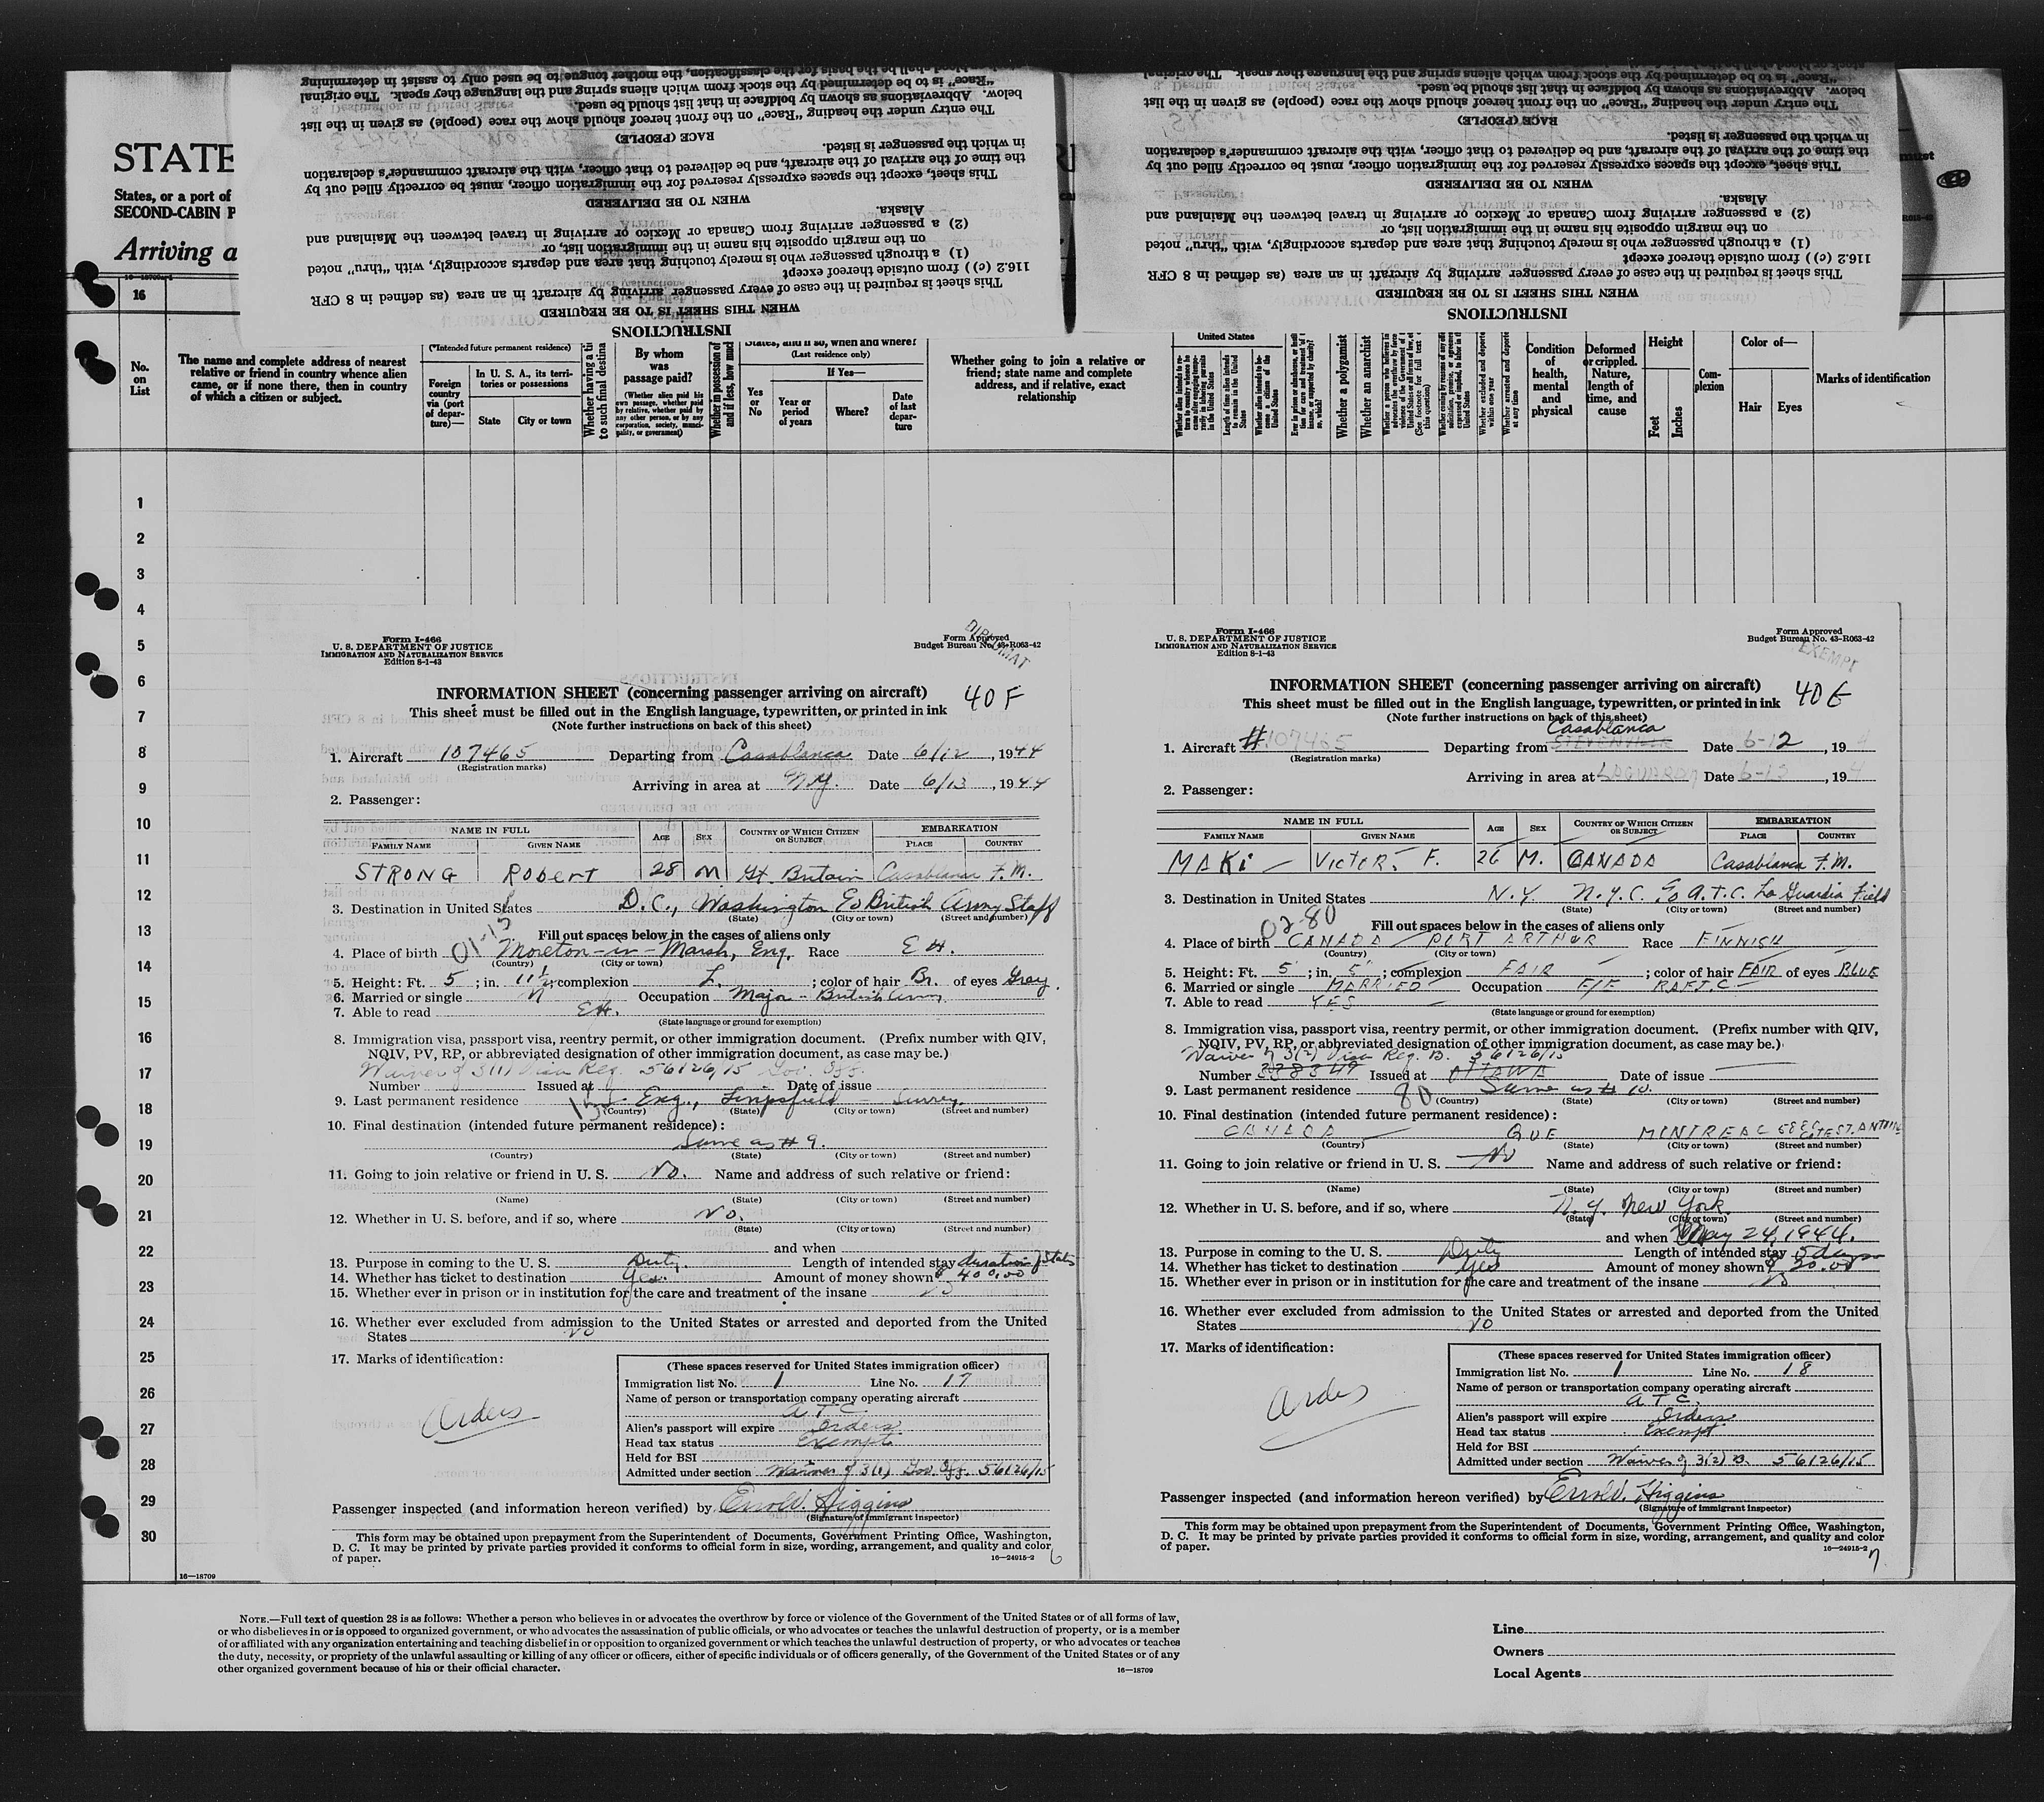 STATE
States, or a port of
SECOND-CABIN P
Arriving a
16
INSTRUCTIONS
WHEN THIS SHEET IS TO BE REQUIRED
This sheet is required in the case of every passenger arriving by aircraft in an area (as defined in 8 CFR
116.2 (c)) from outside thereof except
(1) a through passenger who is merely touching that area and departs accordingly, with "thru" noted
on the margin opposite his name in the immigration list, or
(2) a passenger arriving from Canada or Mexico or arriving in travel between the Mainland and
Alaska.
WHEN TO BE DELIVERED
This sheet, except the spaces expressly reserved for the immigration officer, must be correctly filled out by
the time of the arrival of the aircraft, and be delivered to that officer, with the aircraft commander's declaration
in which the passenger is listed.
RACE (PEOPLE)
The entry under the heading "Race" on the front hereof should show the race (people) as given in the list
below. Abbreviations as shown by boldface in that list should be used. The original
"Race" is to be determined by the stock from which aliens spring and the language they speak.
INSTRUCTIONS
WHEN THIS SHEET IS TO BE REQUIRED
This sheet is required in the case of every passenger arriving by aircraft in an area (as defined in 8 CFR
116.2 (c)) from outside thereof except
(1) a through passenger who is merely touching that area and departs accordingly, with "thru" noted
on the margin opposite his name in the immigration list, or
(2) a passenger arriving from Canada or Mexico or arriving in travel between the Mainland and
Alaska.
WHEN TO BE DELIVERED
This sheet, except the spaces expressly reserved for the immigration officer, must be correctly filled out by
the time of the arrival of the aircraft, and be delivered to that officer, with the aircraft commander's declaration
in which the passenger is listed.
RACE (PEOPLE)
The entry under the heading "Race" on the front hereof should show the race (people) as given in the list
below. Abbreviations as shown by boldface in that list should be used.
"Race" is to be determined by the stock from which aliens spring and the language they speak. The original
No. on List
The name and complete address of nearest relative or friend in country whence alien came, or if none there, then in country of which a citizen or subject.
(*Intended future permanent residence)
Foreign country via (port of departure)—
In U. S. A., its territories or possessions
State City or town
By whom was passage paid?
(Whether alien paid his own passage, whether paid by relative, whether paid by any other person, or by any corporation, society, municipality, or government)
(Last residence only)
Yes or No
If Yes—
Year or period of years Where? Date of last departure
Whether going to join a relative or friend; state name and complete address, and if relative, exact relationship
United States
Whether a polygamist
Whether an anarchist
Condition of health, mental and physical
Deformed or crippled. Nature, length of time, and cause
Height
Feet Inches
Complexion
Color of—
Hair Eyes
Marks of identification
1
2
3
4
5
6
7
8
9
10
11
12
13
14
15
16
17
18
19
20
21
22
23
24
25
26
27
28
29
30
16—18709
Form I-466
U. S. DEPARTMENT OF JUSTICE
IMMIGRATION AND NATURALIZATION SERVICE
Edition 8-1-43
Form Approved
Budget Bureau No. 43-R063-42
DIPLOMAT
INFORMATION SHEET (concerning passenger arriving on aircraft) 40 F
This sheet must be filled out in the English language, typewritten, or printed in ink
(Note further instructions on back of this sheet)
1. Aircraft 107465 Departing from Casablanca Date 6/12, 1944
(Registration marks)
Arriving in area at N.Y. Date 6/13, 1944
2. Passenger:
NAME IN FULL AGE SEX COUNTRY OF WHICH CITIZEN OR SUBJECT EMBARKATION
FAMILY NAME GIVEN NAME PLACE COUNTRY
STRONG Robert 28 M Gt. Britain Casablanca F.M.
3. Destination in United States D.C., Washington c/o British Army Staff
(State) (City or town) (Street and number)
01-15
Fill out spaces below in the cases of aliens only
4. Place of birth Moreton-in-Marsh, Eng. Race
(Country) (City or town)
5. Height: Ft. 5; in. 11½; complexion L.; color of hair Br. of eyes Gray.
6. Married or single Occupation Major - British Army
7. Able to read
(State language or ground for exemption)
8. Immigration visa, passport visa, reentry permit, or other immigration document. (Prefix number with QIV,
NQIV, PV, RP, or abbreviated designation of other immigration document, as case may be.)
Waiver of 3(1) Visa Reg. 56126/15 Gov. Off.
Number Issued at Date of issue
9. Last permanent residence 15 Eng., Limpsfield - Surrey
(Country) (State) (City or town) (Street and number)
10. Final destination (intended future permanent residence):
Same as # 9.
(Country) (State) (City or town) (Street and number)
11. Going to join relative or friend in U. S. No. Name and address of such relative or friend:
(Name) (State) (City or town) (Street and number)
12. Whether in U. S. before, and if so, where No.
(State) (City or town) (Street and number)
and when
13. Purpose in coming to the U. S. Duty. Length of intended stay duration of status
14. Whether has ticket to destination Yes. Amount of money shown $400.00
15. Whether ever in prison or in institution for the care and treatment of the insane No
16. Whether ever excluded from admission to the United States or arrested and deported from the United
States No
17. Marks of identification:
Orders
(These spaces reserved for United States immigration officer)
Immigration list No. 1 Line No. 17
Name of person or transportation company operating aircraft
A T C
Alien's passport will expire Orders
Head tax status Exempt
Held for BSI
Admitted under section Waiver of 3(1) Gov. Off. 56126/15
Passenger inspected (and information hereon verified) by Errol W. Higgins
(Signature of immigrant inspector)
This form may be obtained upon prepayment from the Superintendent of Documents, Government Printing Office, Washington,
D. C. It may be printed by private parties provided it conforms to official form in size, wording, arrangement, and quality and color
of paper.
16—24915-2
6
Form I-466
U. S. DEPARTMENT OF JUSTICE
IMMIGRATION AND NATURALIZATION SERVICE
Edition 8-1-43
Form Approved
Budget Bureau No. 43-R063-42
EXEMPT
INFORMATION SHEET (concerning passenger arriving on aircraft) 40 E
This sheet must be filled out in the English language, typewritten, or printed in ink
(Note further instructions on back of this sheet)
Casablanca
1. Aircraft # 107465 Departing from Date 6-12, 194
(Registration marks)
Arriving in area at Date 6-13, 194
2. Passenger:
NAME IN FULL AGE SEX COUNTRY OF WHICH CITIZEN OR SUBJECT EMBARKATION
FAMILY NAME GIVEN NAME PLACE COUNTRY
MAKI VICTOR. F. 26 M. CANADA Casablanca F.M.
3. Destination in United States N.Y. N.Y.C. c/o A.T.C. La Guardia Field
(State) (City or town) (Street and number)
02-80
Fill out spaces below in the cases of aliens only
4. Place of birth CANADA PORT ARTHUR Race FINNISH
(Country) (City or town)
5. Height: Ft. 5; in. 5; complexion FAIR; color of hair FAIR of eyes BLUE
6. Married or single MARRIED Occupation RAFTC
7. Able to read YES
(State language or ground for exemption)
8. Immigration visa, passport visa, reentry permit, or other immigration document. (Prefix number with QIV,
NQIV, PV, RP, or abbreviated designation of other immigration document, as case may be.)
Waiver of 3(2) Visa Reg. B. 56126/15
Number 338349 Issued at OTTAWA Date of issue
9. Last permanent residence 80 Same as # 10.
(Country) (State) (City or town) (Street and number)
10. Final destination (intended future permanent residence):
CANADA QUE MONTREAL
(Country) (State) (City or town) (Street and number)
11. Going to join relative or friend in U. S. No Name and address of such relative or friend:
(Name) (State) (City or town) (Street and number)
12. Whether in U. S. before, and if so, where N.Y. New York.
(State) (City or town) (Street and number)
and when May 24, 1944.
13. Purpose in coming to the U. S. Duty Length of intended stay 5 days
14. Whether has ticket to destination Yes Amount of money shown $20.00
15. Whether ever in prison or in institution for the care and treatment of the insane No
16. Whether ever excluded from admission to the United States or arrested and deported from the United
States No
17. Marks of identification:
Orders
(These spaces reserved for United States immigration officer)
Immigration list No. 1 Line No. 18
Name of person or transportation company operating aircraft
A T C.
Alien's passport will expire Orders
Head tax status Exempt
Held for BSI
Admitted under section Waiver of 3(2) B. 56126/15
Passenger inspected (and information hereon verified) by Errol W. Higgins
(Signature of immigrant inspector)
This form may be obtained upon prepayment from the Superintendent of Documents, Government Printing Office, Washington,
D. C. It may be printed by private parties provided it conforms to official form in size, wording, arrangement, and quality and color
of paper.
16—24915-2
7
NOTE.—Full text of question 28 is as follows: Whether a person who believes in or advocates the overthrow by force or violence of the Government of the United States or of all forms of law,
or who disbelieves in or is opposed to organized government, or who advocates the assassination of public officials, or who advocates or teaches the unlawful destruction of property, or is a member
of or affiliated with any organization entertaining and teaching disbelief in or opposition to organized government or which teaches the unlawful destruction of property, or who advocates or teaches
the duty, necessity, or propriety of the unlawful assaulting or killing of any officer or officers, either of specific individuals or of officers generally, of the Government of the United States or of any
other organized government because of his or their official character.
16—18709
Line
Owners
Local Agents